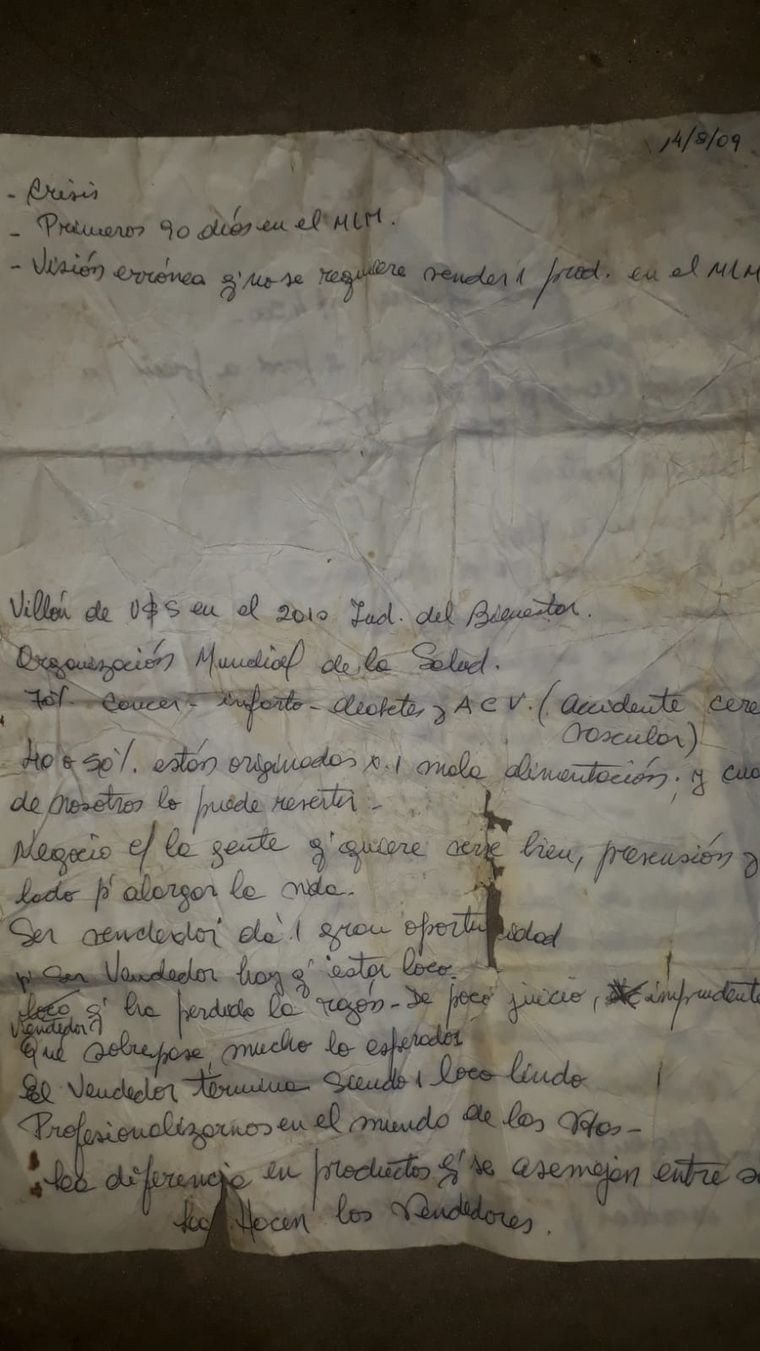 14/8/09
- Crisis
- Primeros 90 días en el MLM.
- Visión errónea q' no se requiere vender 1 prod. en el MLM
Villón de U$S en el 2010 Ind. del Bienestar.
Organización Mundial de la Salud.
70% Cancer - infarto - diabetes y ACV. (accidente cere
vascular)
40 o 50%. están originadas x. 1 mala alimentación; y cua
de nosotros lo puede revertir -
Negocio c/ la gente q' quiere verse bien, y
lado p' alargar la vida.
Ser vendedor dá 1 gran oportunidad
p' Ser Vendedor hay q' estar loco.
loco q' ha perdido la razón - De poco juicio, imprudente
Vendedor?
Que sobrepasa mucho lo esperado
El Vendedor termina siendo 1 loco lindo
Profesionalizarnos en el mundo de las Vtas -
La diferencia en productos q' se asemejan entre s
la Hacen los Vendedores.